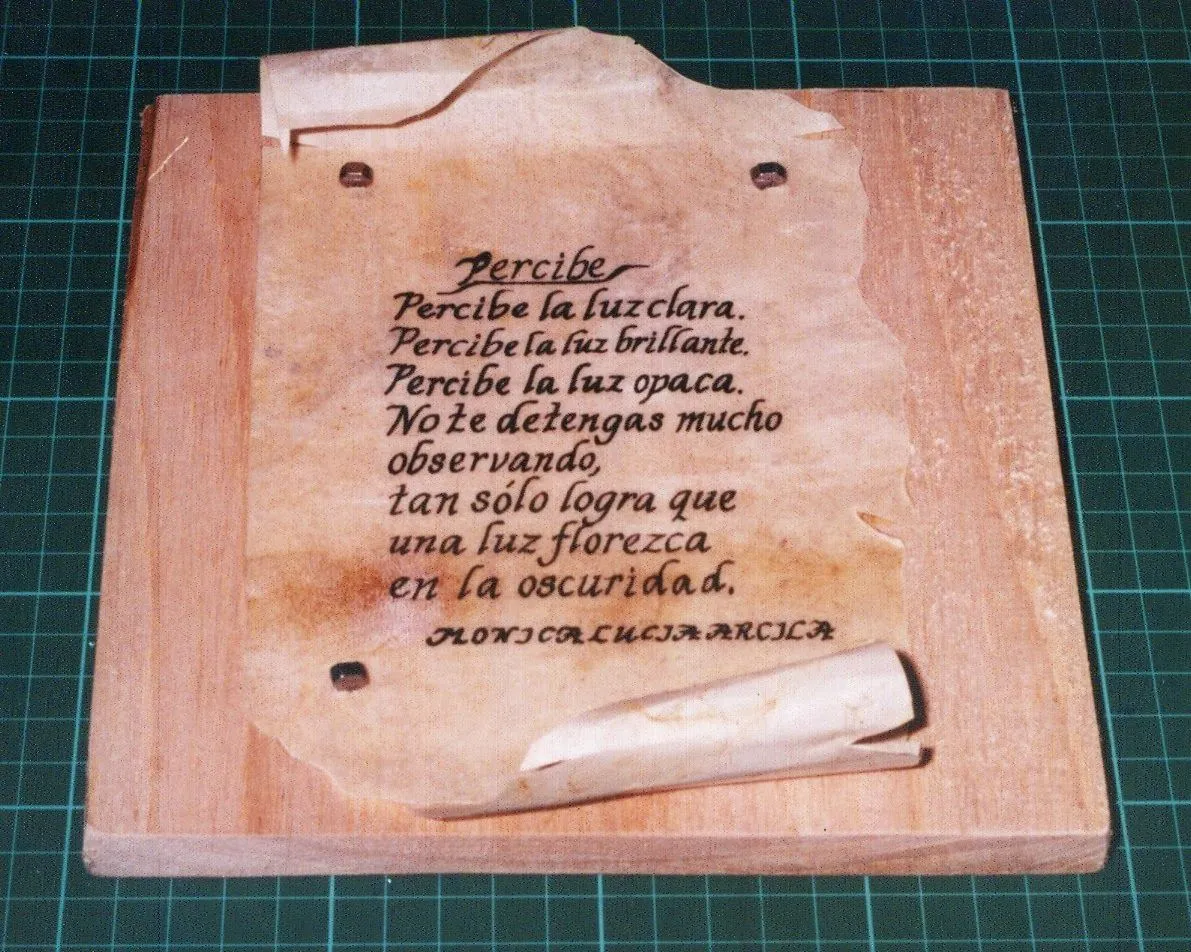 Percibe
Percibe la luz clara.
Percibe la luz brillante.
Percibe la luz opaca.
No te detengas mucho
observando,
tan sólo logra que
una luz florezca
en la oscuridad.
MONICA LUCIA ARCILA